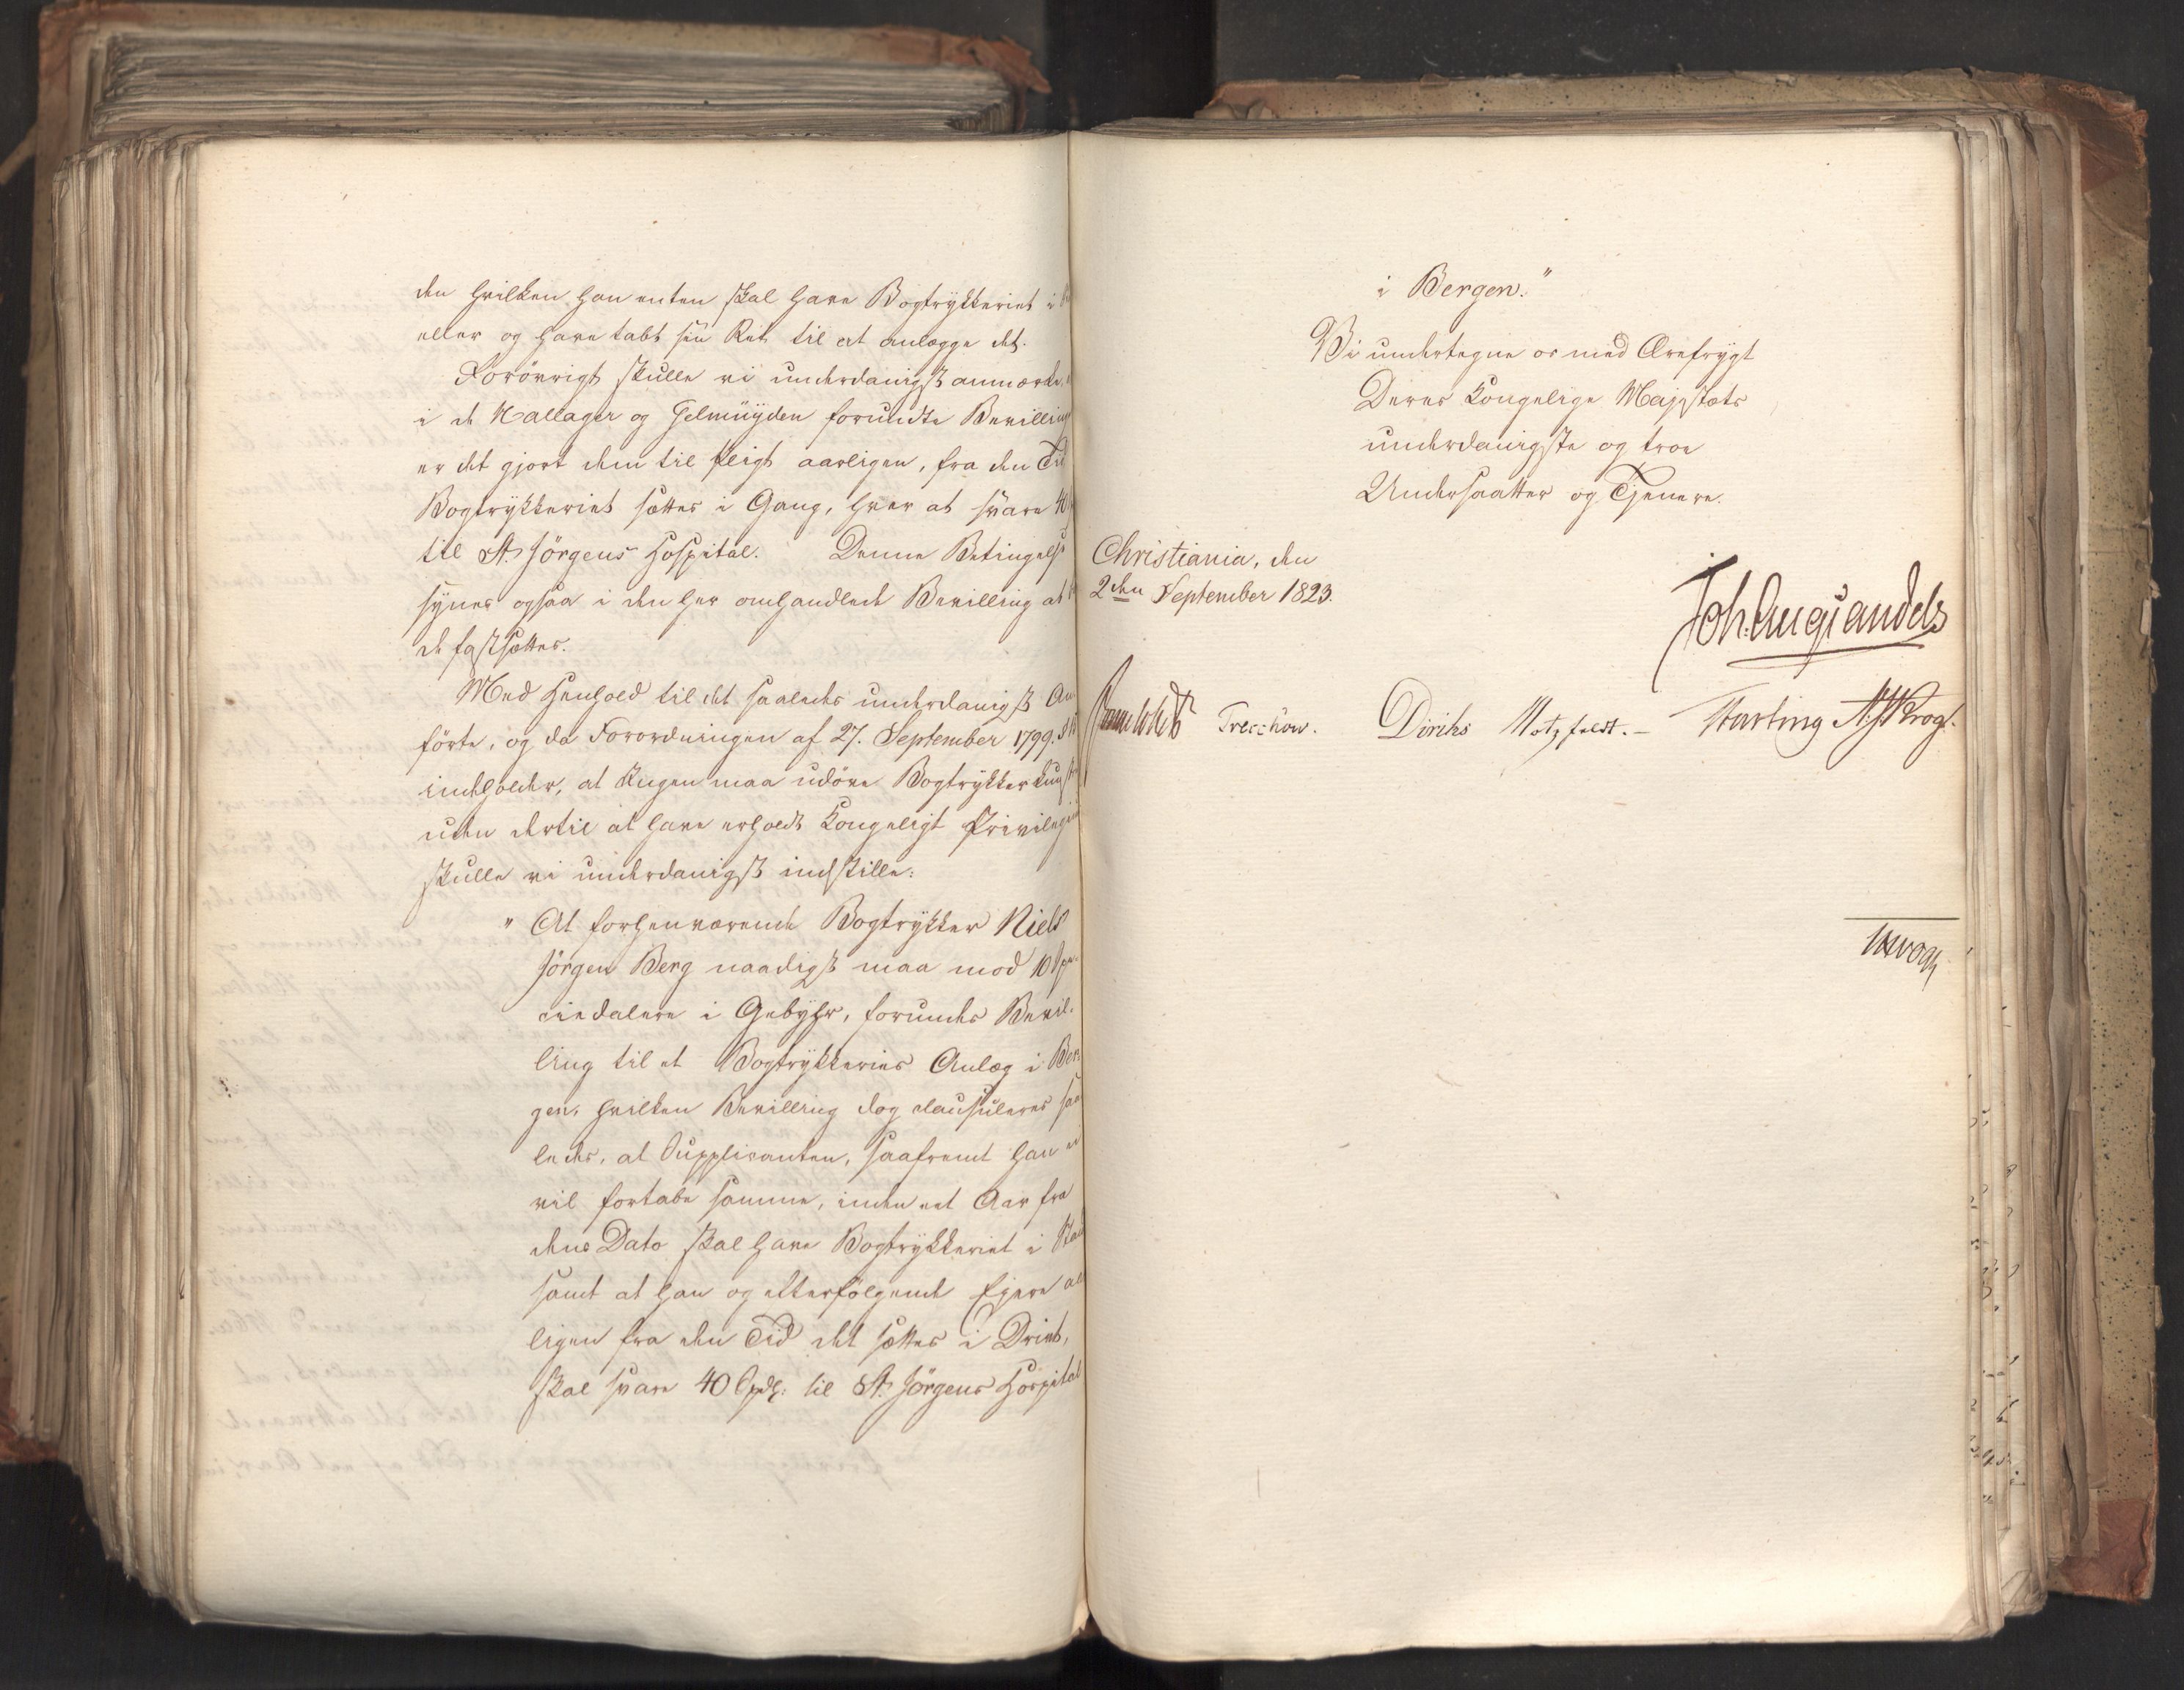 den hvilken han enten skal have Bogtrykkeriet i
eller og have tabt sin Ret til at anlægge det.
Forövrigt skulle vi underdanigst anmærke,
i de Hallager og Gelmüyden forundte Bevilling
er det gjort dem til Pligt aarligen, fra den Tid
Bogtrykkeriet sættes i Gang, hver at svare 40
til St. Jörgens Hospital. Denne Betingelse
synes ogsaa i den her omhandlede Bevilling at
de fastsættes.
Med Henhold til det saaledes underdanigst An
förte, og da Forordningen af 27. September 1799.
indeholder, at Ingen maa udöve Bogtrykkerkunsten
uden dertil at have erholdt Kongeligt Privilegium
skulle vi underdanigst indstille:
" At forhenværende Bogtrykker Niels
Jörgen Berg naadigst maa mod 10 Spe
ciedalere i Gebyhr, forundes Bevil-
ling til et Bogtrykkeries Anlæg i Ber
gen, hvilken Bevilling dog clausuleres saa
ledes, at Supplicanten, saafremt han ei
vil fortabe samme, inden eet Aar fra
dens Dato skal have Bogtrykkeriet i Stand
samt at han og efterfölgende Ejere aar
ligen fra den Tid det sættes i Drivt,
skal svare 40 Spdl: til St. Jörgens Hospital
i Bergen."
Vi undertegne os med Ærefrygt
Deres Kongelige Majestæts
underdanigste og troe
Undersaatter og Tjenere.
Christiania, den
2den September 1823.
Joh. Aug. Sandels
Sommerhielm Treschow. Diriks Motzfeldt. - Fasting H Krog.
Krogh